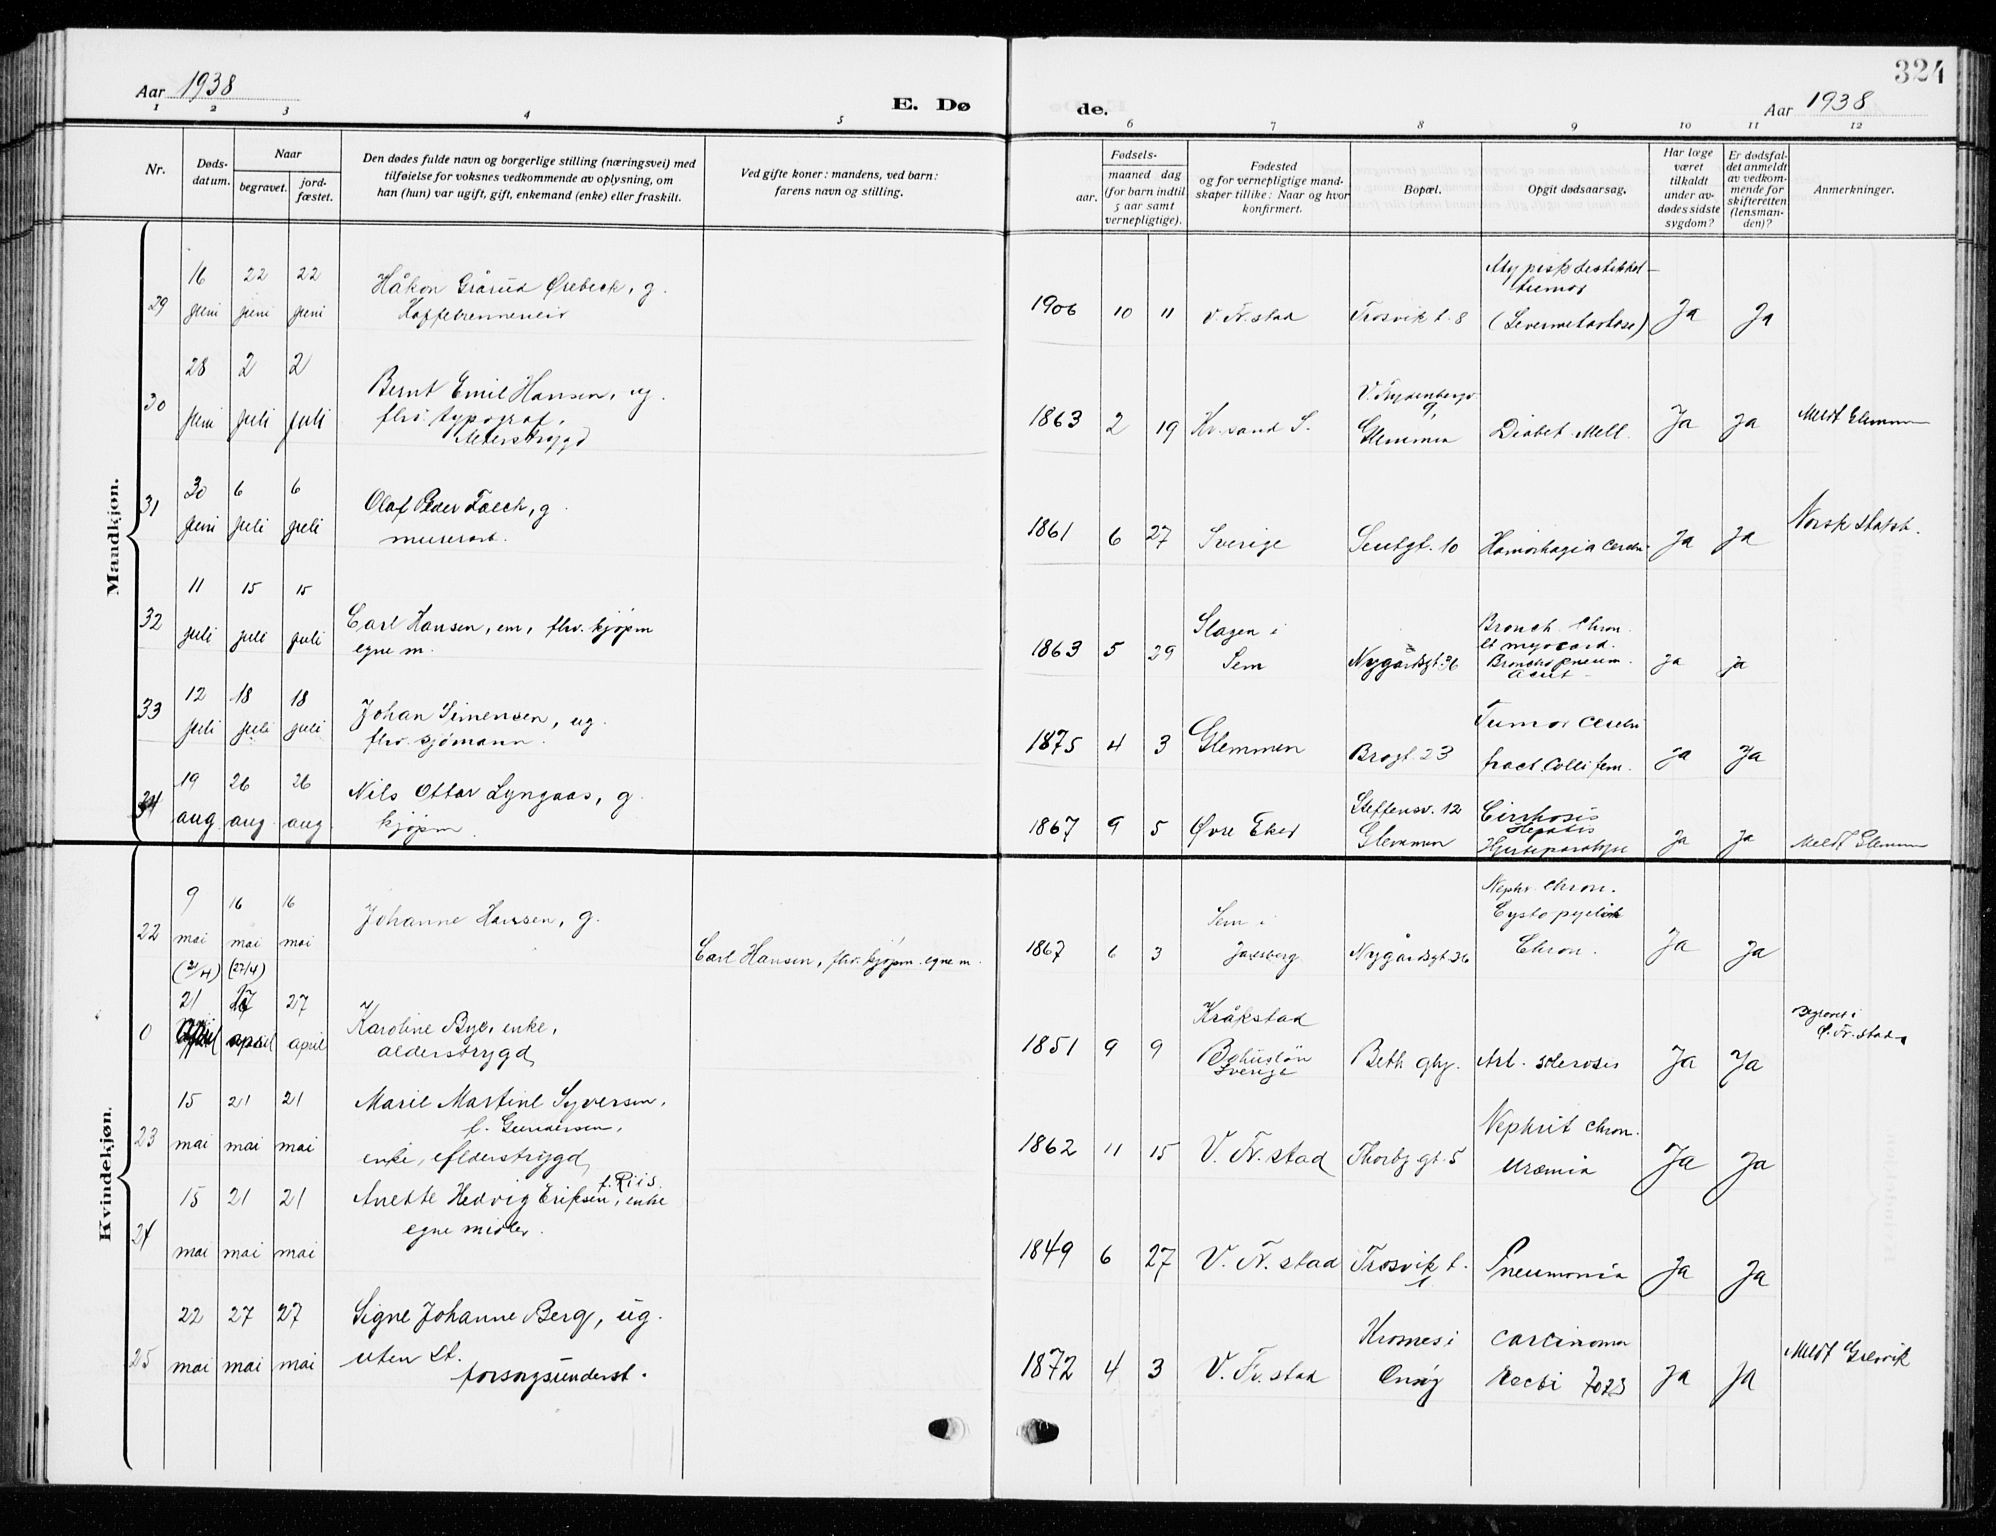 324
Aar 1938
E. Dø
de.
Aar 1938
1 2 3 4 5 6 7 8 9 10 11 12
Nr.
Døds-
datum.
Naar
begravet.
jord-
fæstet.
Den dødes fulde navn og borgerlige stilling (næringsvei) med
tilføielse for voksnes vedkommende av oplysning, om
han (hun) var ugift, gift, enkemand (enke) eller fraskilt.
Ved gifte koner: mandens, ved barn:
farens navn og stilling.
Fødsels-
aar.
maaned dag
(for barn indtil
5 aar samt
vernepligtige).
Fødested
og for vernepligtige mand-
skaper tillike: Naar og hvor
konfirmert.
Bopæl.
Opgit dødsaarsag.
Har læge
været
tilkaldt
under av-
dødes sidste
sygdom?
Er dødsfal-
det anmeldt
av vedkom-
mende for
skifteretten
(lensman-
den)?
Anmerkninger.
Mandkjøn.
29
16 juni
22 juni
22 juni
Håkon Grårud Ørebeck, g.
1906 10 11
V. Fr.stad
Trosvik t. 8
tumor
Ja
Ja
30
28 juni
2 juli
2 juli
Bernt Emil Hansen, ug.
fhv. typograf,
1863 2 19
Kr.sand S.
9,
Glemmen
Diabet. Mell.
Ja
Ja
Meldt Glemmen
31
30 juni
6 juli
6 juli
Olaf Peder Falch, g.
murerarb.
1861 6 27
Sverige
10
Hæmorhagia cerebr.
Ja
Ja
Norsk statsb.
32
11 juli
15 juli
15 juli
Carl Hansen, em, fhv. kjøpm
egne m.
1863 5 29
Slagen i
Sem
Nygårdsgt. 36
Bronch. Chron.
et myocard.
Bronchopneum.
acut
ja
ja
33
12 juli
18 juli
18 juli
Johan Simensen, ug.
fhv. sjømann.
1875 4 3
Glemmen
Brogt. 23
Tumor cerebri
fract. Colli fem.
ja
Ja
34
19 aug
26 aug.
26 aug.
Nils Ottar Lyngaas, g.
kjøpm.
1867 9 5
Øvre Eker
Steffensv. 12
Glemmen
Cirrhosis
Hepatis
Hjerteparalyse
Ja
Ja
Meldt Glemmen
Kvindekjøn.
22
9 mai
16 mai
16 mai
(21/4) (27/4)
Johanne Hansen, g.
Carl Hansen, fhv. kjøpm. egne m.
1867 6 3
Sem i
Jarlsberg
Nygårdsgt. 36
Nephr. Chron.
Chron.
Ja
Ja
0
21 april
april
27 april
Karoline Bye, enke,
alderstrygd
1851 9 9
Kråkstad
Bohuslän
Sverige
Beth. ghj.
Art. sclerosis
Ja
Ja
Begravet i
Ø. Fr.stad
23
15 mai
21 mai
21 mai
Marie Martine Syversen,
f. Gundersen,
enke, alderstrygd
1862 11 15
V. Fr.stad
Thorbj. gt. 5
Nephrit chron.
Uræmia
Ja
Ja
24
15 mai
21 mai
21 mai
f. Riis.
Anette Hedvig Eriksen, enke
egne midler.
1849 6 27
V. Fr. stad
Trosvik t.
1
Pneumonia
Ja
Ja
25
22 mai
27 mai
27 mai
Signe Johanne Berg, ug.
uten st.
forsorgsunderst.
1872 4 3
V. Fr. stad
Onsøy
Carcinoma
Recti
Ja
Ja
Meldt Grevik